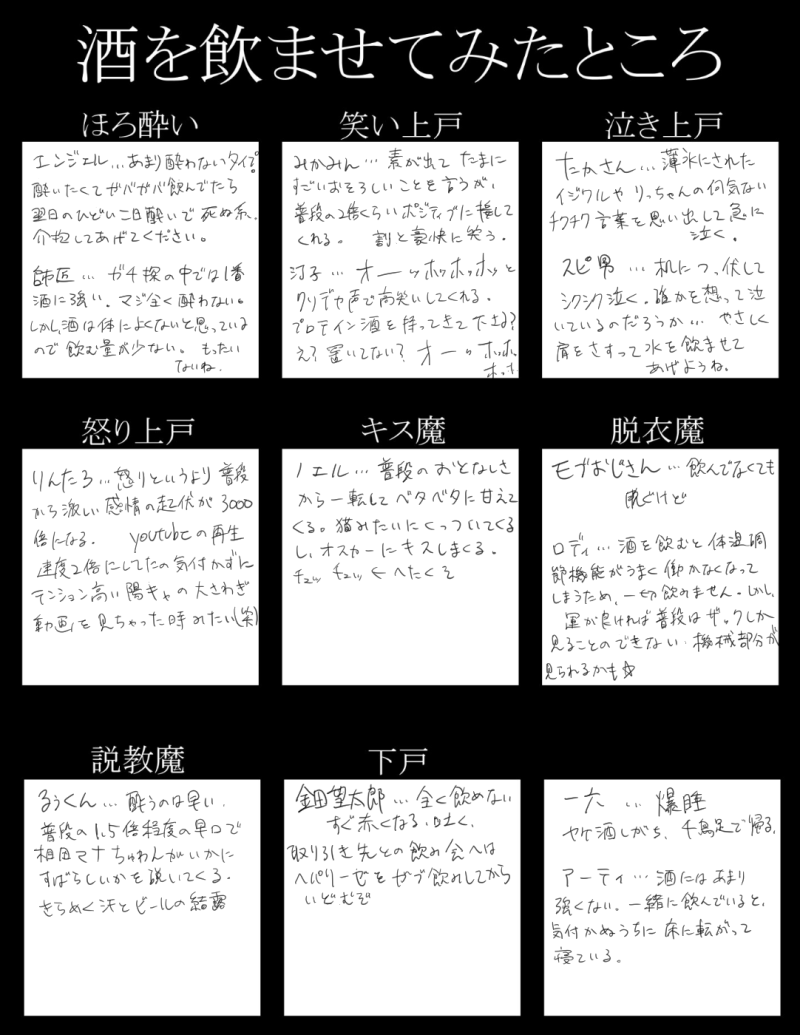 酒を飲ませてみたところ
ほろ酔い
エンジェル…あまり酔わないタイプ。
酔いたくてガバガバ飲んでたら
翌日のひどい二日酔いで死ぬ系、
介抱してあげてください。
師匠…ガチ探の中では1番
酒に強い、マジ全く酔わない。
しかし酒は体によくないと思っている
ので飲む量が少ない。もったい
ないね、
笑い上戸
みかみん…素が出てたまに
すごいおそろしいことを言うが、
普段の2倍くらいポジティブに接して
くれる。割と豪快に笑う、
汀子…オーッホッホッホッと
クソデケ声で高笑いしてくれる、
プロテイン酒を持ってきて下さる?
え?置いてない?オーッホッホ
ホッホ
泣き上戸
たかさん…薄氷にされた
イジワルやりっちゃんの何気ない
チクチク言葉を思い出して急に
泣く、
スピ男…机につっ伏して
シクシク泣く、誰かを想って泣
いているのだろうか…やさしく
肩をさすって水を飲ませて
あげようね。
怒り上戸
りんたろ…怒りというより普段
から激しい感情の起伏が3000
倍になる。youtubeの再生
速度2倍にしてたの気付かずに
テンション高い陽キャの大さわぎ
動画を見ちゃった時みたい(笑)
キス魔
ノエル…普段のおとなしさ
から一転してベタベタに甘えて
くる。猫みたいにくっついてくる
し、オスカーにキスしまくる。
チュッチュッ←へたくそ
脱衣魔
モブおじさん…飲んでなくても
脱ぐけど
ロディ…酒を飲むと体温調
節機能がうまく働かなくなって
しまうため、一切飲みません。しかし、
運が良ければ普段はザックしか
見ることのできない、機械部分が
見られるかも☆
説教魔
るうくん…酔うのは早い、
普段の1.5倍程度の早口で
相田マナちゅわんがいかに
すばらしいかを説いてくる、
きらめく汗とビールの結露
下戸
金田望太郎…全く飲めない
すぐ赤くなる、吐く、
取り引き先との飲み会へは
ヘパリーゼをガブ飲みしてから
いどむぞ
一六…爆睡
ヤケ酒しがち、千鳥足で帰る、
アーティ…酒にはあまり
強くない、一緒に飲んでいると、
気付かぬうちに床に転がって
寝ている。